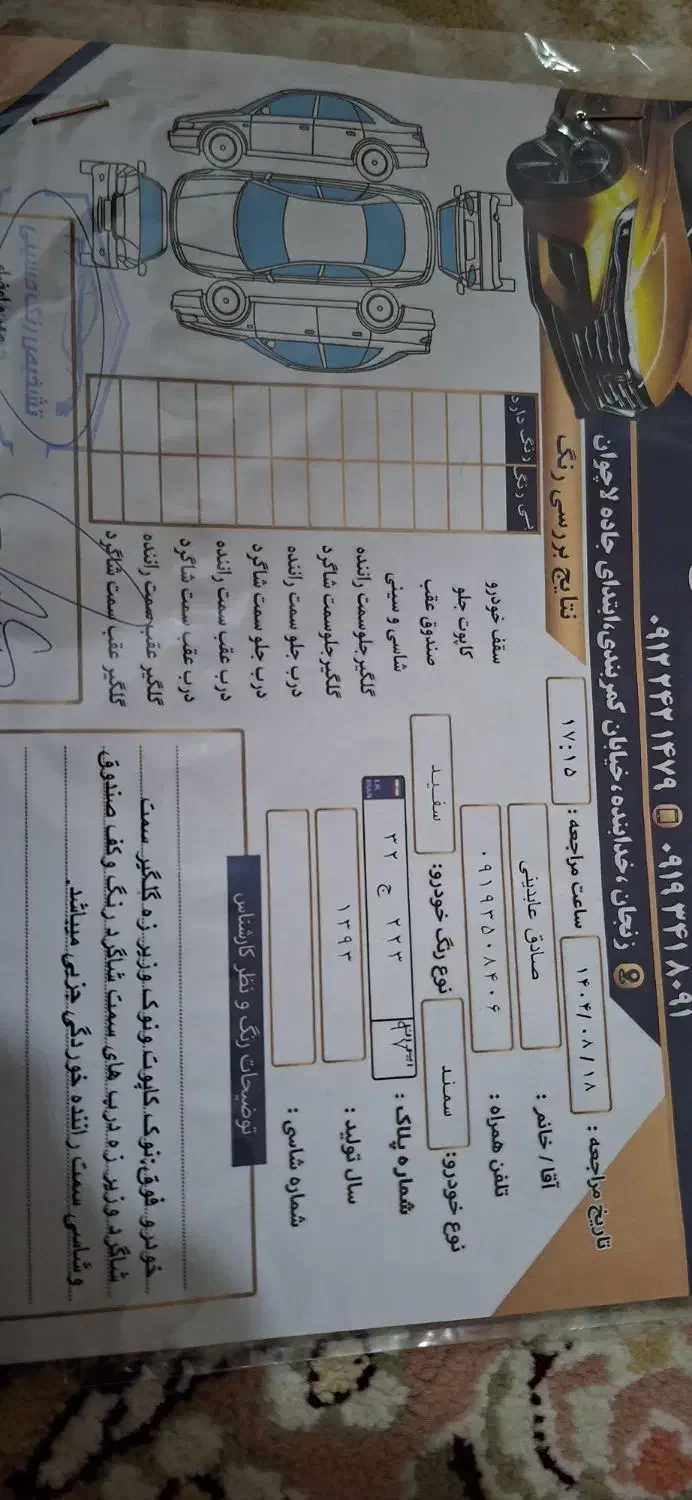 ۰۹۱۲ ۲۴۲ ۱۴۷۹ ۰۹۱۹ ۳۴۱ ۸۰۹۱
زنجان، خدابنده، خیابان کمربندی، ابتدای جاده لاچوان
تاریخ مراجعه : ۱۴۰۴/۰۸/۱۸ ساعت مراجعه : ۱۷:۱۵
آقا / خانم : صادق عابدینی
تلفن همراه : ۰۹۱۹۳۵۰۸۴۰۶
نوع خودرو: سمند نوع رنگ خودرو: سفید
شماره پلاک : ۳۲ ج ۲۲۳
ایران
سال تولید : ۱۳۹۳
شماره شاسی :
توضیحات رنگ و نظر کارشناس
خودرو فوق:نوک کاپوت ونوک وزیر زه گلگیر سمت
شاگرد وزیر زه درب های سمت شاگرد رنگ وکف صندوق
وشاسی سمت راننده خوردگی جزیی میباشد.
نتایج بررسی رنگ
بی رنگ رنگ دارد
سقف خودرو
کاپوت جلو
صندوق عقب
شاسی و سینی
گلگیر جلوسمت راننده
گلگیر جلوسمت شاگرد
درب جلو سمت راننده
درب جلو سمت شاگرد
درب عقب سمت راننده
درب عقب سمت شاگرد
گلگیر عقب سمت راننده
گلگیر عقب سمت شاگرد
تشخیص رنگ حسینی